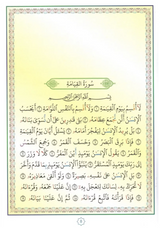 سُورَةُ القِيَامَةِ
بِسْمِ اللَّهِ الرَّحْمَنِ الرَّحِيمِ
لَا أُقْسِمُ بِيَوْمِ الْقِيَامَةِ وَلَا أُقْسِمُ بِالنَّفْسِ اللَّوَّامَةِ أَيَحْسَبُ
الْإِنسَانُ أَلَّن نَّجْمَعَ عِظَامَهُ بَلَى قَادِرِينَ عَلَى أَن نُّسَوِّيَ بَنَانَهُ
بَلْ يُرِيدُ الْإِنسَانُ لِيَفْجُرَ أَمَامَهُ يَسْأَلُ أَيَّانَ يَوْمُ الْقِيَامَةِ
فَإِذَا بَرِقَ الْبَصَرُ وَخَسَفَ الْقَمَرُ وَجُمِعَ الشَّمْسُ
وَالْقَمَرُ يَقُولُ الْإِنسَانُ يَوْمَئِذٍ أَيْنَ الْمَفَرُّ كَلَّا لَا وَزَرَ
إِلَى رَبِّكَ يَوْمَئِذٍ الْمُسْتَقَرُّ يُنَبَّأُ الْإِنسَانُ يَوْمَئِذٍ بِمَا قَدَّمَ وَأَخَّرَ
بَلِ الْإِنسَانُ عَلَى نَفْسِهِ بَصِيرَةٌ وَلَوْ أَلْقَى مَعَاذِيرَهُ
لَا تُحَرِّكْ بِهِ لِسَانَكَ لِتَعْجَلَ بِهِ إِنَّ عَلَيْنَا جَمْعَهُ وَقُرْآنَهُ
فَإِذَا قَرَأْنَاهُ فَاتَّبِعْ قُرْآنَهُ ثُمَّ إِنَّ عَلَيْنَا بَيَانَهُ